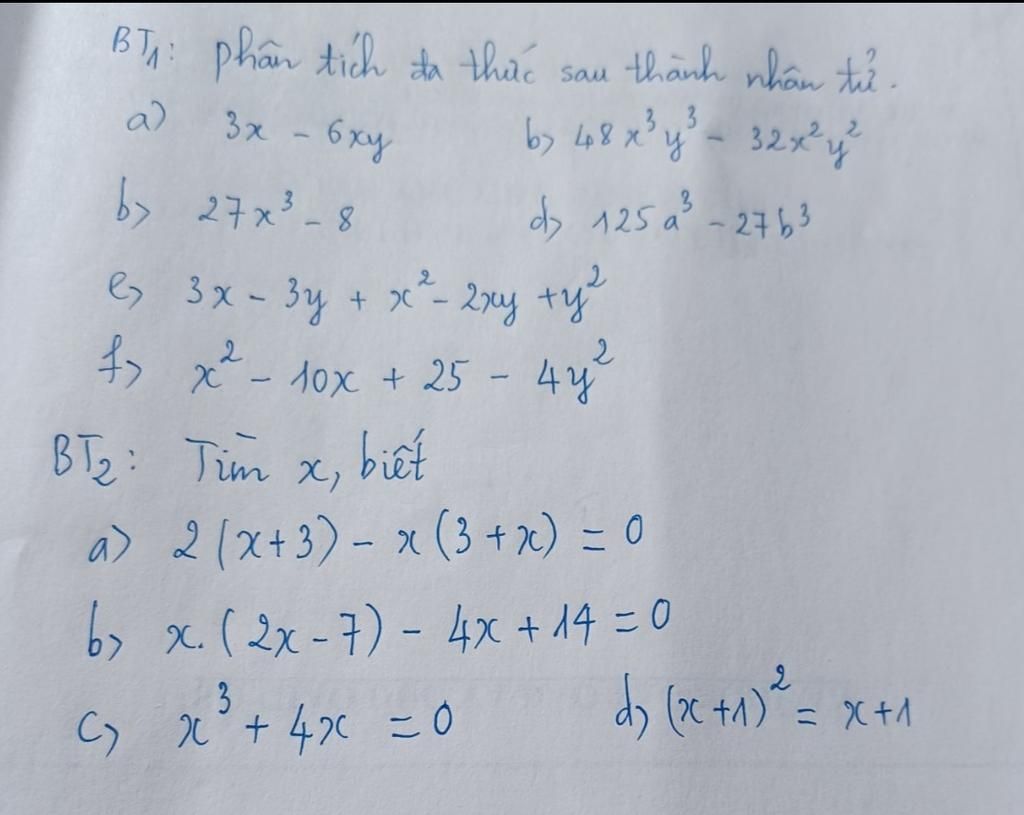 BT1: phân tích đa thức sau thành nhân tử.
a) 3x - 6xy b> 48x³y³ - 32x²y²
b> 27x³ - 8 d> 125a³ - 27b³
e> 3x - 3y + x² - 2xy + y²
f> x² - 10x + 25 - 4y²
BT2: Tìm x, biết
a) 2(x+3) - x(3+x) = 0
b> x.(2x-7) - 4x + 14 = 0
c> x³ + 4x = 0 d> (x+1)² = x+1